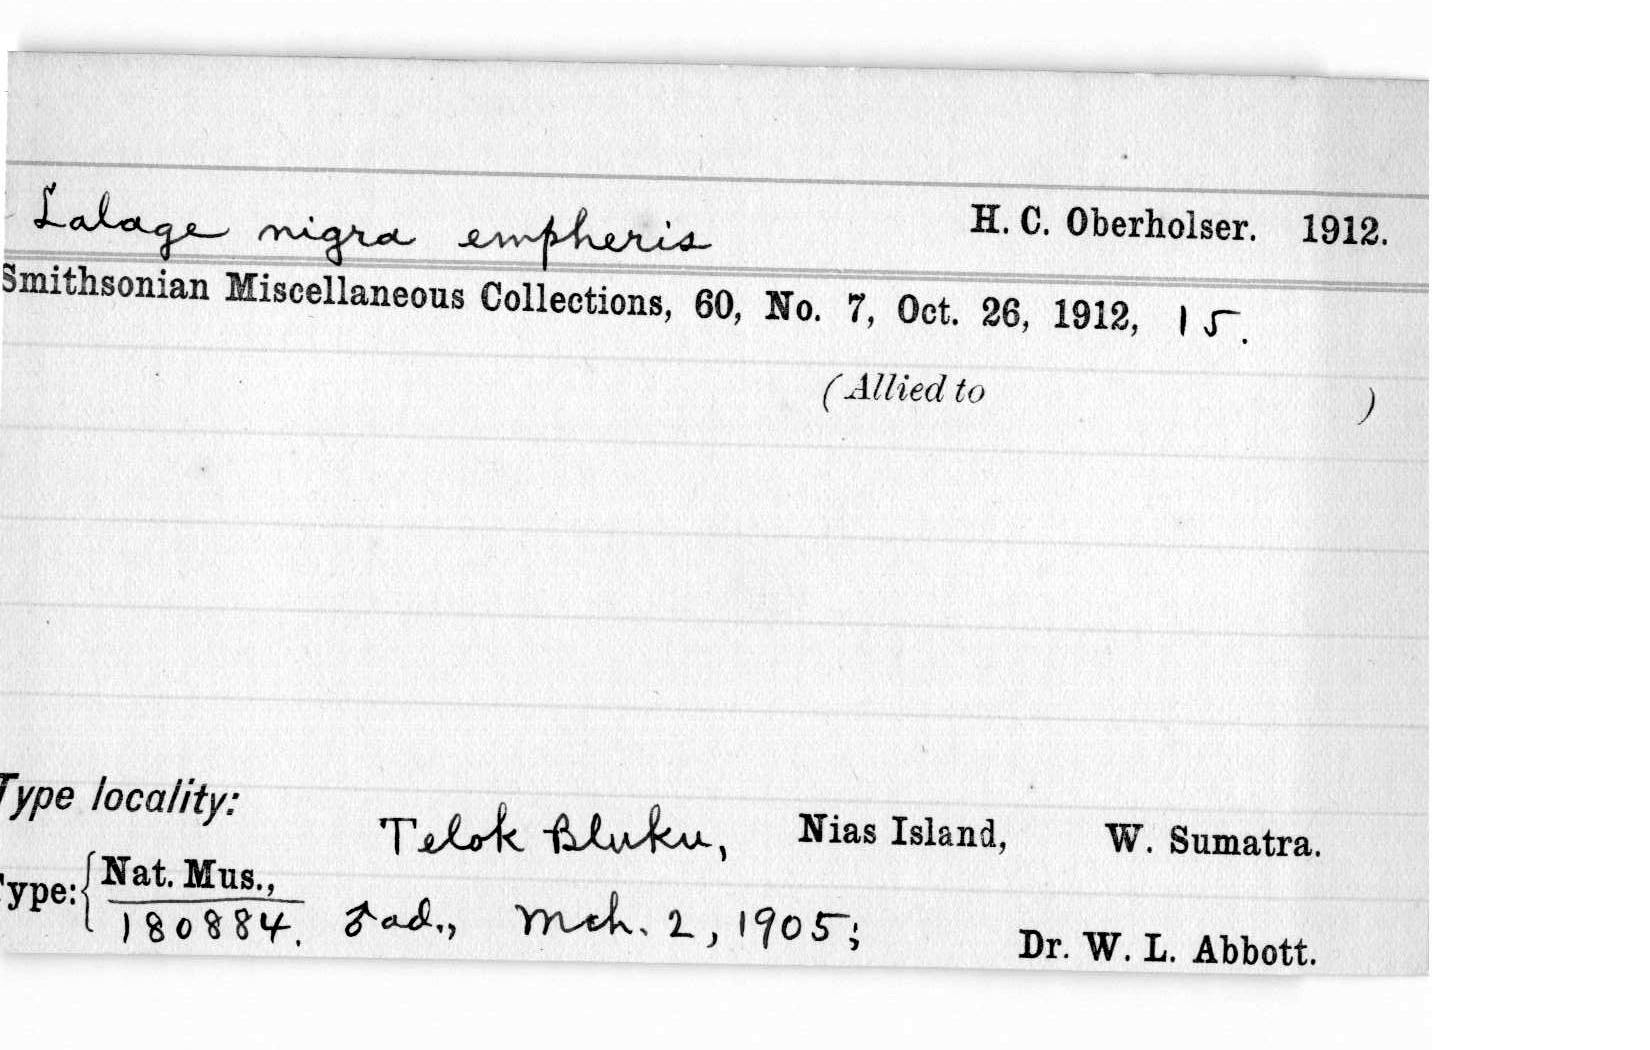 Lalage nigra empheris H. C. Oberholser. 1912.
Smithsonian Miscellaneous Collections, 60, No. 7, Oct. 26, 1912, 15.
(Allied to )
Type locality:
Telok Bluku, Nias Island, W. Sumatra.
Type: { Nat. Mus.,
180884. ♂ ad., Mch. 2, 1905; Dr. W. L. Abbott.